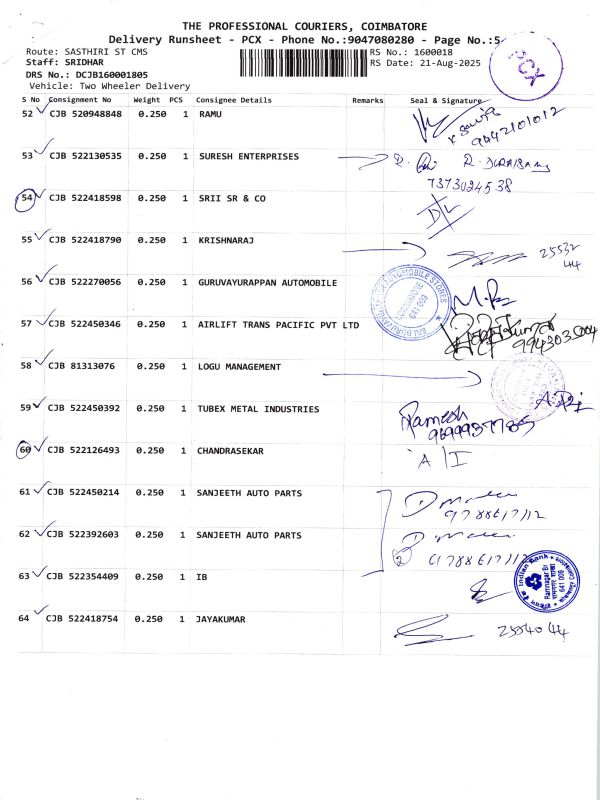 THE PROFESSIONAL COURIERS, COIMBATORE
Delivery Runsheet - PCX - Phone No.:9047080280 - Page No.:5
Route: SASTHIRI ST CMS RS No.: 1600018
Staff: SRIDHAR RS Date: 21-Aug-2025
DRS No.: DCJB160001805
Vehicle: Two Wheeler Delivery
PCX
S No Consignment No Weight PCS Consignee Details Remarks Seal & Signature
52 CJB 520948848 0.250 1 RAMU
9442101012
53 CJB 522130535 0.250 1 SURESH ENTERPRISES R. DURAISAMY
7373024538
54 CJB 522418598 0.250 1 SRII SR & CO D/L
55 CJB 522418790 0.250 1 KRISHNARAJ 25532
44
56 CJB 522270056 0.250 1 GURUVAYURAPPAN AUTOMOBILE
COIMBATORE
641 009
57 CJB 522450346 0.250 1 AIRLIFT TRANS PACIFIC PVT LTD
58 CJB 81313076 0.250 1 LOGU MANAGEMENT
59 CJB 522450392 0.250 1 TUBEX METAL INDUSTRIES Ramesh
60 CJB 522126493 0.250 1 CHANDRASEKAR A/I
61 CJB 522450214 0.250 1 SANJEETH AUTO PARTS
9788617112
62 CJB 522392603 0.250 1 SANJEETH AUTO PARTS
2 9788617112
63 CJB 522354409 0.250 1 IB
Indian Bank
Ramnagar Br
641 009
64 CJB 522418754 0.250 1 JAYAKUMAR 2554044